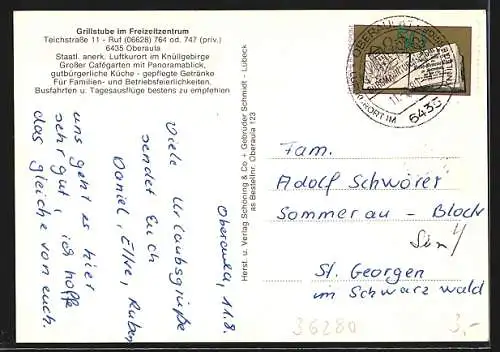 Grillstube im Freizeitzentrum
Teichstraße 11 - Ruf (06628) 764 od. 747 (priv.)
6435 Oberaula
Staatl. anerk. Luftkurort im Knüllgebirge
Großer Cafégarten mit Panoramablick,
gutbürgerliche Küche - gepflegte Getränke
Für Familien- und Betriebsfeierlichkeiten,
Busfahrten u. Tagesausflüge bestens zu empfehlen
Oberaula, 11.8.
Viele Urlaubsgrüße
sendet Euch
Daniel, Elke, Ruben
uns geht es hier
sehr gut, ich hoffe
das gleiche von euch.
Herst. u. Verlag Schöning & Co + Gebrüder Schmidt - Lübeck
as Bestellnr. Oberaula 123
OBERAULA
LUFTKURORT IM
6435
Fam.
Adolf Schwörer
Sommerau - Block
St. Georgen
im Schwarzwald
36280
3,-